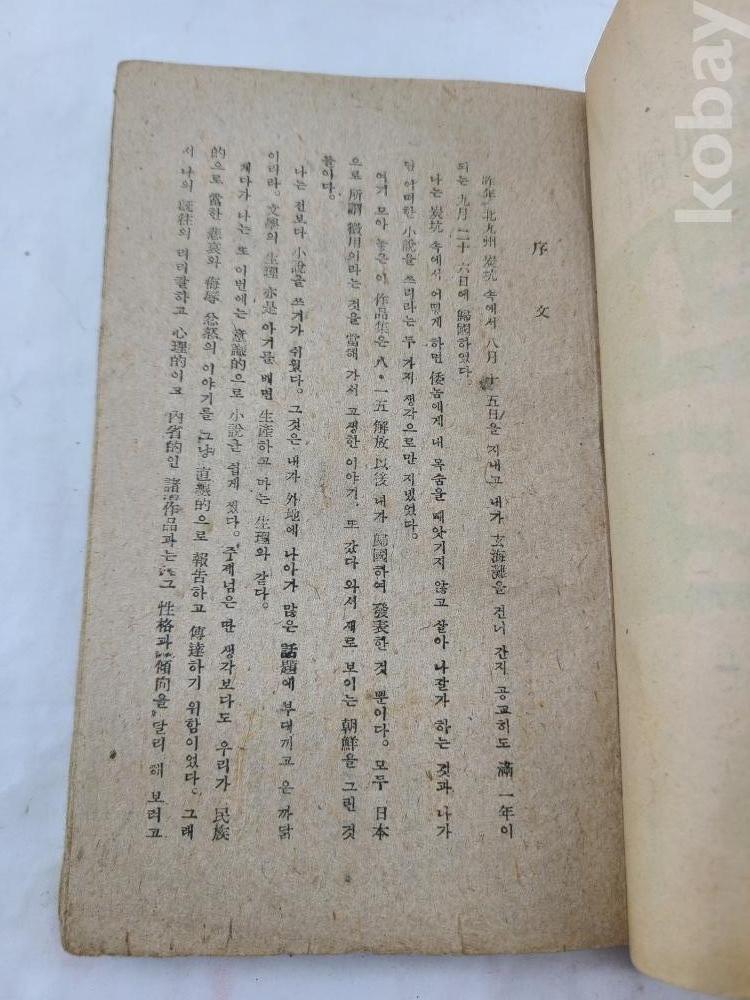 序文
昨年 北九州 炭坑 속에서 八月 十五日을 지내고 내가 玄海灘을 건너 간지 공교히도 滿 一年이
되는 九月 二十六日에 歸國하였다.
나는 炭坑 속에서 어떻게 하면 倭놈에게 내 목숨을 빼앗기지 않고 살아 나갈가 하는 것과 나가
면 어떠한 小說을 쓰리라는 두 가지 생각으로만 지냈었다.
여기 모아 놓은 이 作品集은 八·一五 解放 以後 내가 歸國하여 發表한 것 뿐이다. 모두 日本
으로 所謂 徵用이라는 것을 當해 가서 고생한 이야기, 또 갔다 와서 새로 보이는 朝鮮을 그린 것
들이다.
나는 전보다 小說을 쓰기가 쉬웠다. 그것은 내가 外地에 나아가 많은 話題에 부대끼고 온 까닭
이리라. 文學의 生理 亦是 아기를 배면 生產하고 마는 生理와 같다.
게다가 나는 또 이번에는 意識的으로 小說을 쉽게 썼다. 주제넘은 딴 생각보다도 우리가 民族
的으로 當한 悲哀와 侮辱 忿怒의 이야기를 그냥 直觀的으로 報告하고 傳達하기 위함이었다. 그래
서 나의 旣往의 러리칼하고 心理的이고 內省的인 諸作品과는 그 性格과 傾向을 달리 해 보려고
kobay